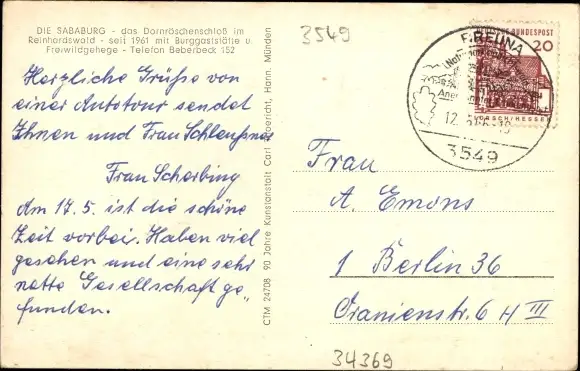 DIE SABABURG - das Dornröschenschloß im
Reinhardswald - seit 1961 mit Burggaststätte u.
Freiwildgehege - Telefon Beberbeck 152
Herzliche Grüße von
einer Autotour sendet
Ihnen und Frau Schleußner
Frau Scherbing
Am 17.5. ist die schöne
Zeit vorbei. Haben viel
gesehen und eine sehr
nette Gesellschaft ge„
funden.
CTM 24708 90 Jahre Kunstanstalt Carl Hann. Münden
3549
DEUTSCHE BUNDESPOST
20
LORSCH/HESSEN
12.
3549
Frau
A. Emons
1 Berlin 36
Oranienstr. 6 H III
34369